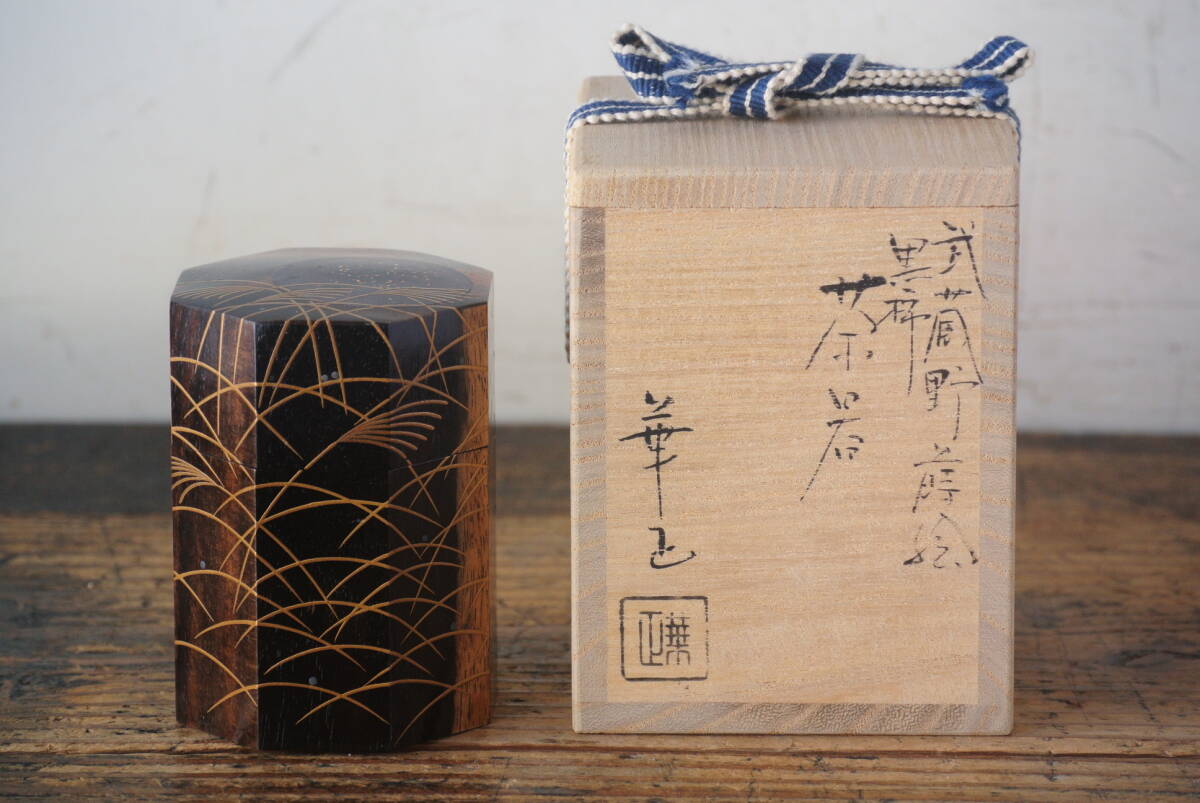 武蔵野蒔絵
黒柿
茶器
華正
華正